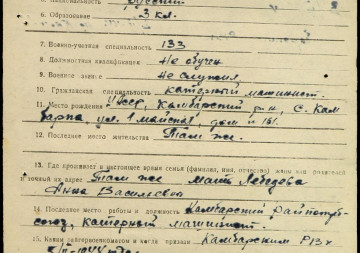 5. Национальность русский
6. Образование 3 кл.
7. Военно-учетная специальность 133
8. Должностная квалификация Не обучен
9. Военное звание Не служил
10. Гражданская специальность катерный машинист.
11. Место рождения УАССР, Камбарский р-н, с. Кам
барка, ул. 1 майская, дом № 161.
12. Последнее место жительства Там же.
13. Где проживает в настоящее время семья (фамилия, имя, отчество) жены или родителей
и точный их адрес Там же Мать Лебедева
Анна Васильевна
14. Последнее место работы и должность Камбарский Райпотреб-
союз, катерный машинист.
15. Каким райгорвоенкоматом и когда призван Камбарским РВК